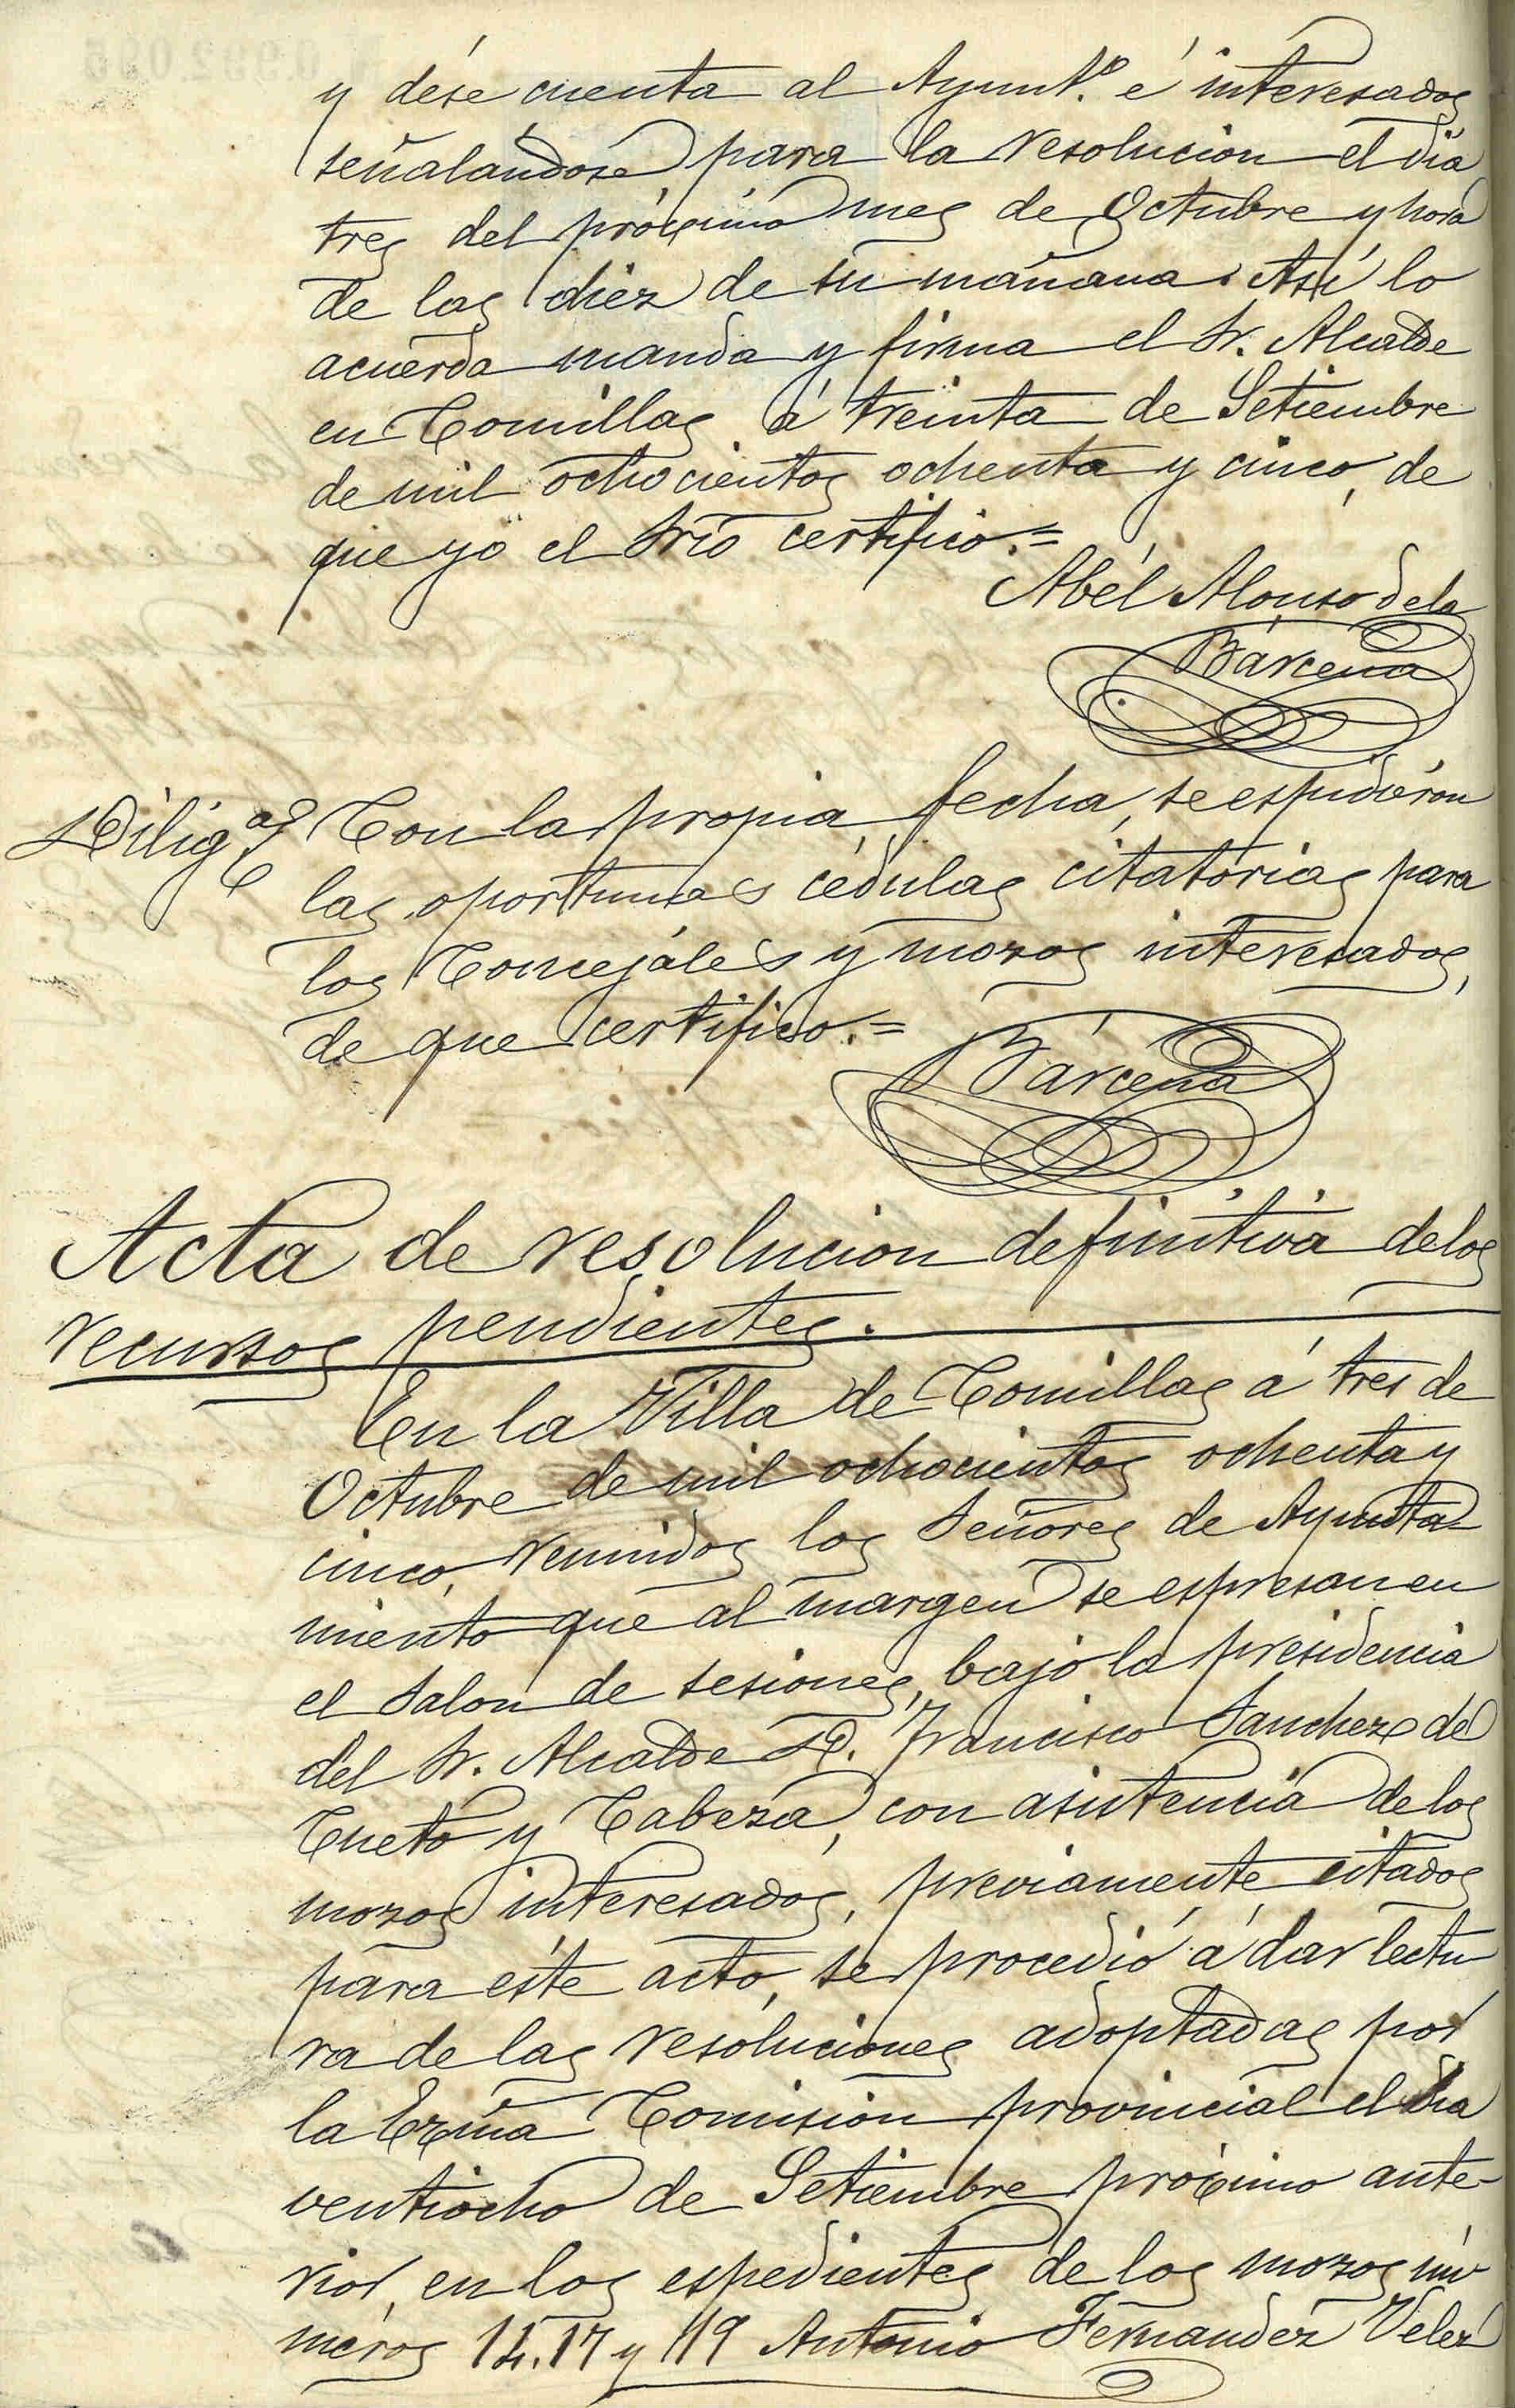 y dése cuenta al Ayunt.º é interesados
señalandose para la resolucion el dia
tres del próximo mes de Octubre y hora
de las diez de su mañana. Así lo
acuerda manda y firma el Sr. Alcalde
en Comillas á treinta de Setiembre
de mil ochocientos ochenta y cinco, de
que yo el Srio certifico.=
Abél Alonso de la
Bárcena
Dilig.ª Con la propia fecha, se espidieron
las oportunas cédulas citatorias para
los Concejáles y mozos interesados,
de que certifico.=
Bárcena
Acta de resolucion definitiva de los
recursos pendientes.
En la Villa de Comillas á tres de
Octubre de mil ochocientos ochenta y
cinco, reunidos los Señores de Ayunta-
miento que al margen se espresan en
el Salon de sesiones, bajo la presidencia
del Sr. Alcalde D. Francisco Sanchez de
Cueto y Cabeza, con asistencia de los
mozos interesados, previamente citados
para éste acto, se procedió á dar lectu
ra de las resoluciones adoptadas por
la Exma Comision provincial el dia
ventiocho de Setiembre próximo ante-
rior, en los espedientes de los mozos nú
meros 14. 17 y 19 Antonio Fernandez Velez